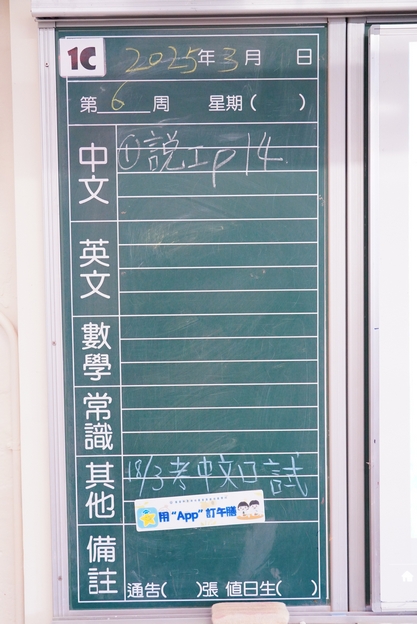 1C 2025年3月 日
第6周 星期( )
中文 ①説工p14
英文
數學
常識
其他 18/3考中文口試
用"App"訂午膳
備註
通告( )張 值日生( )